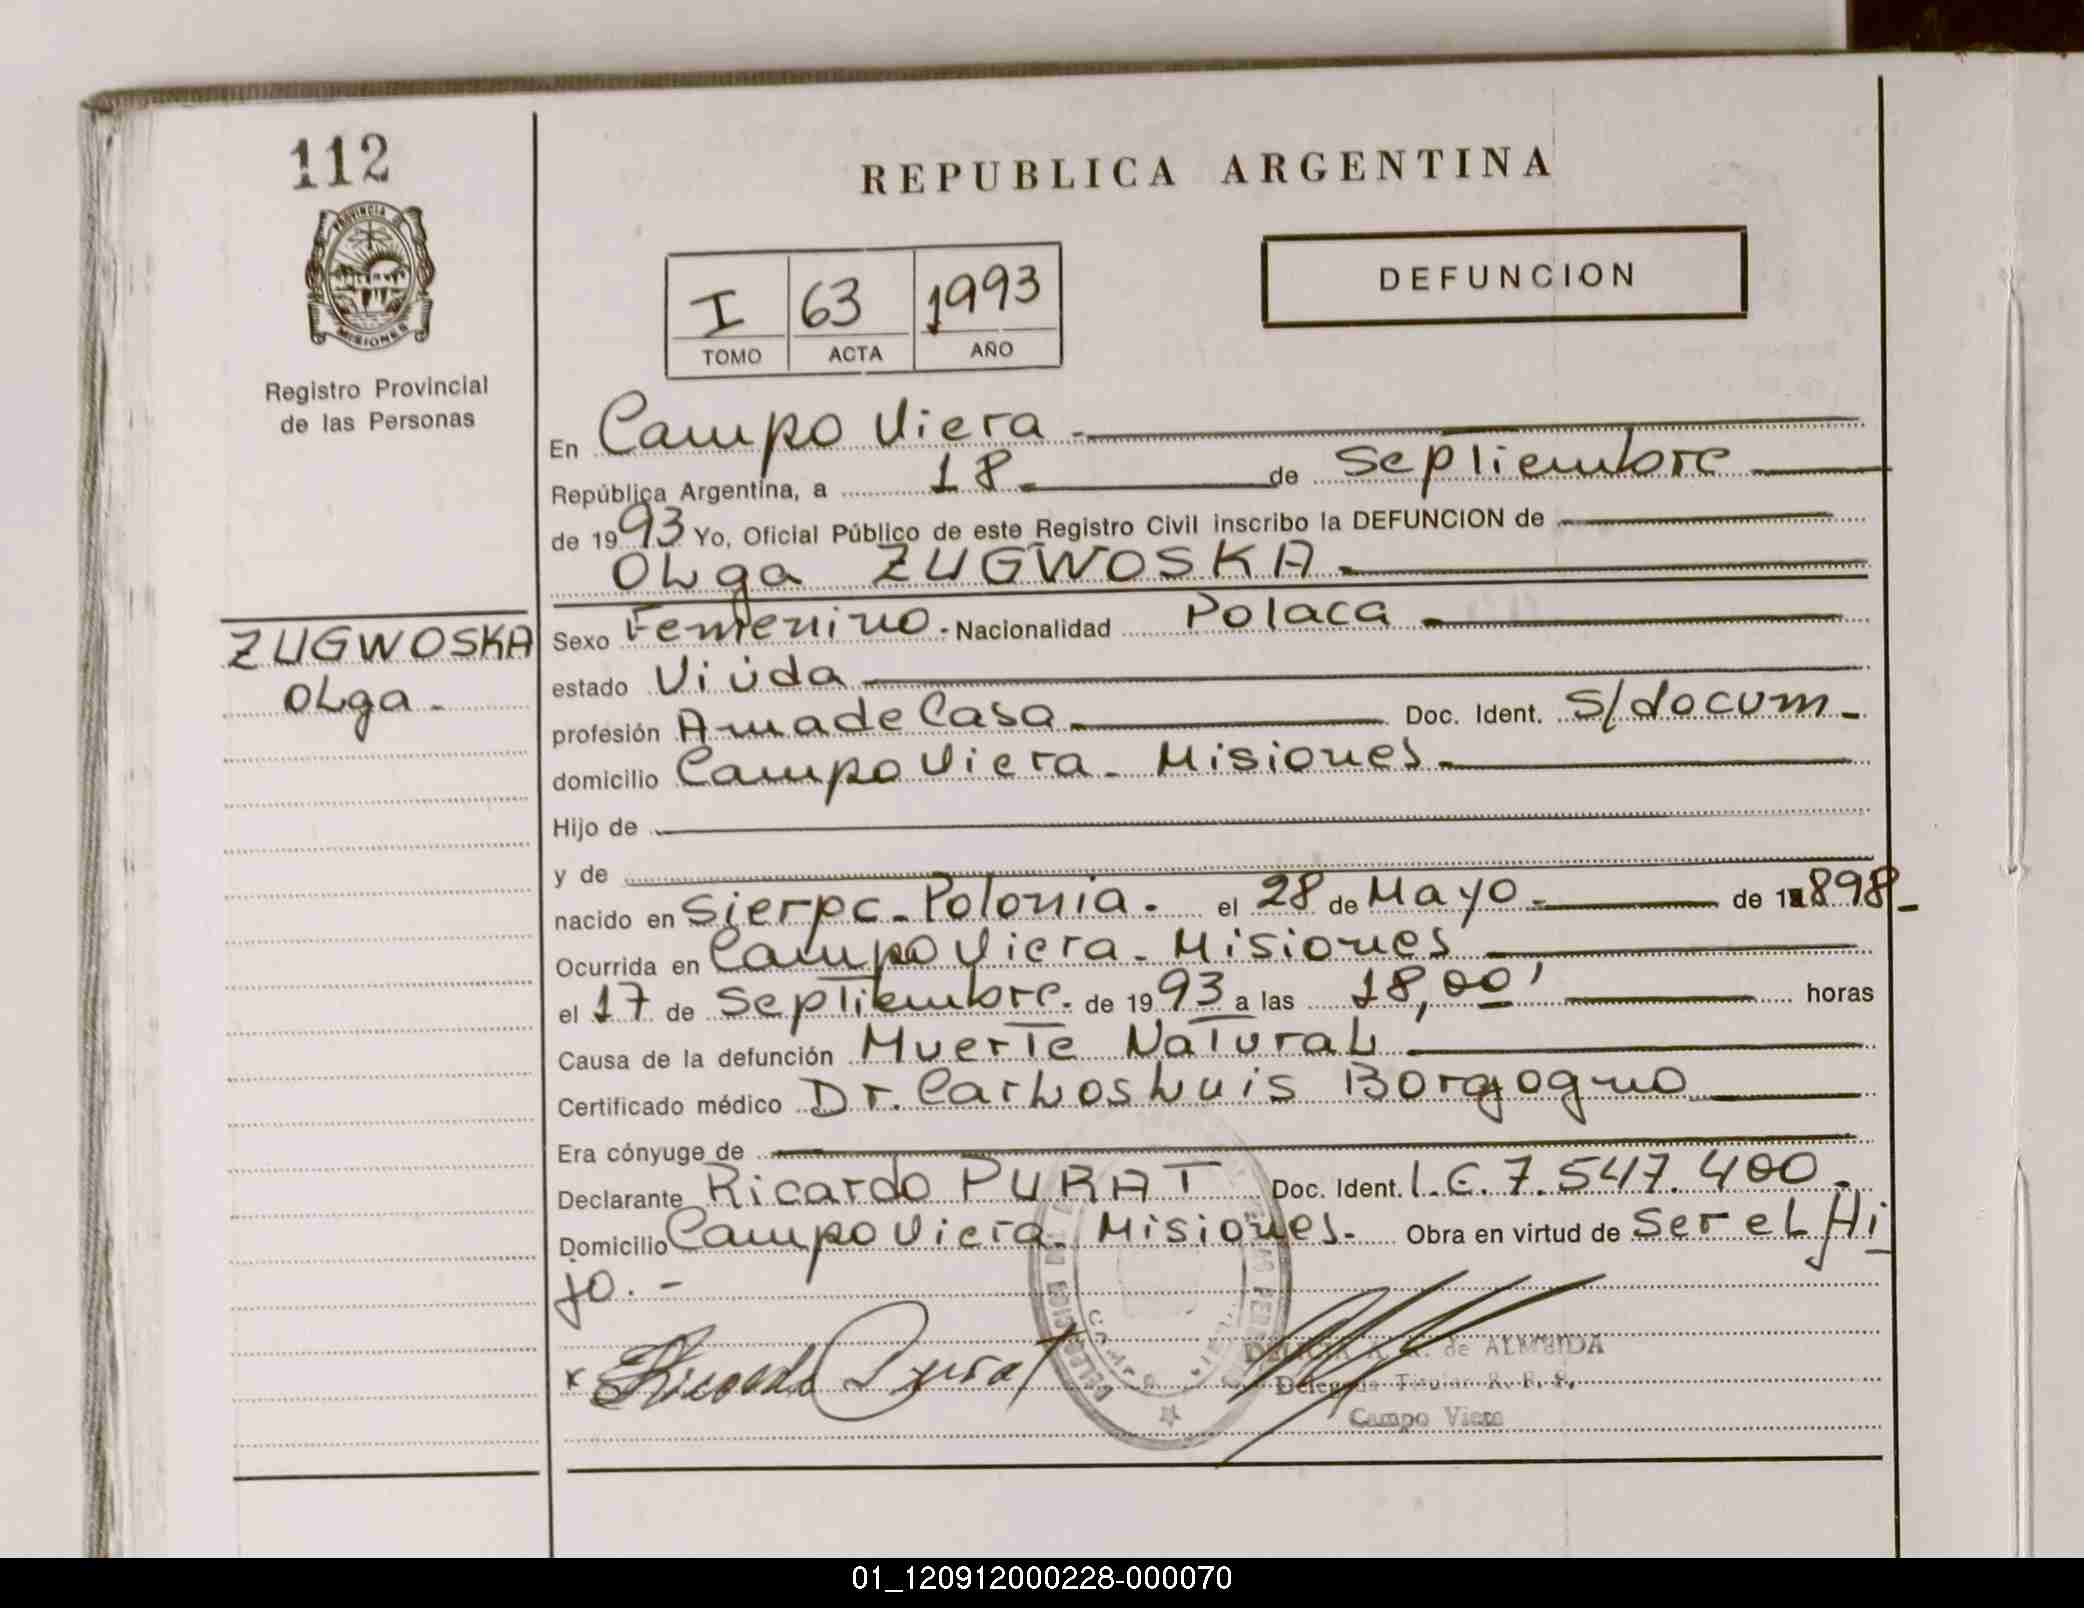 112
PROVINCIA DE
MISIONES
Registro Provincial
de las Personas
ZUGWOSKA
OLga -
REPUBLICA ARGENTINA
DEFUNCION
I 63 1993
TOMO ACTA AÑO
En Campo Viera -
República Argentina, a 18 - de Septiembre
de 1993 Yo, Oficial Público de este Registro Civil inscribo la DEFUNCION de
OLga ZUGWOSKA -
Sexo Femenino - Nacionalidad Polaca
estado Viúda
profesión Ama de Casa Doc. Ident. S/docum -
domicilio Campo Viera - Misiones
Hijo de
y de
nacido en Sierpc - Polonia - el 28 de Mayo - de 1898 -
Ocurrida en Campo Viera - Misiones
el 17 de Septiembre - de 1993 a las 18,00' horas
Causa de la defunción Muerte NaturaL
Certificado médico Dr. CarLos Luis Borgogno
Era cónyuge de
Declarante Ricardo PURAT Doc. Ident. L.E. 7.547.400 -
Domicilio Campo Viera - Misiones - Obra en virtud de Ser eL Hi
jo. -
x Ricardo Purat
de ALMEIDA
Titular R. P. P.
Campo Viera
01_120912000228-000070